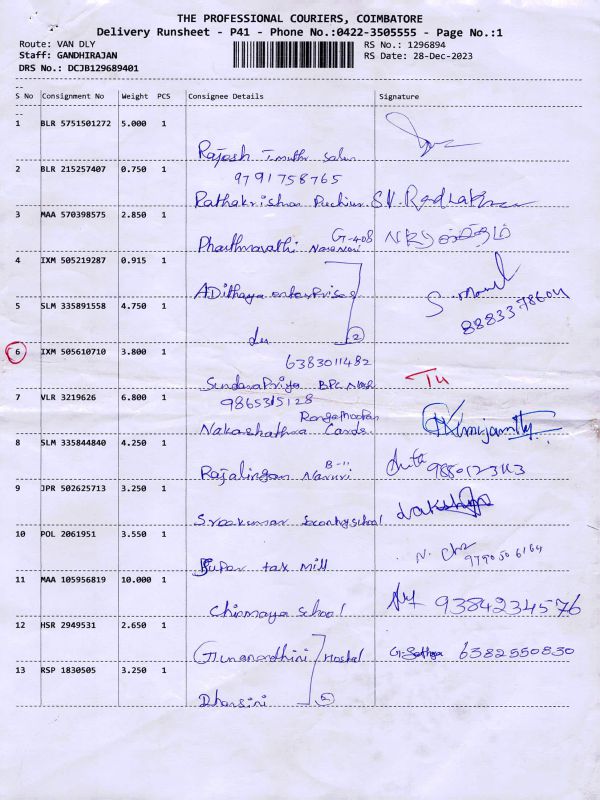 THE PROFESSIONAL COURIERS, COIMBATORE
Delivery Runsheet - P41 - Phone No.:0422-3505555 - Page No.:1
Route: VAN DLY RS No.: 1296894
Staff: GANDHIRAJAN RS Date: 28-Dec-2023
DRS No.: DCJB129689401
--
S No Consignment No Weight PCS Consignee Details Signature
--
1 BLR 5751501272 5.000 1
Rajash
2 BLR 215257407 0.750 1 9791758765
Rathakrishna S.V. Radhakr
3 MAA 570398575 2.850 1
G-408
4 IXM 505219287 0.915 1
ADithaya enterprises S.
5 SLM 335891558 4.750 1 8883378604
du 2
6 IXM 505610710 3.800 1 6383011482
SundaraPriya BPC
7 VLR 3219626 6.800 1 9865315128
Nakashathra Cards
8 SLM 335844840 4.250 1
B-11
Rajalingan
9 JPR 502625713 3.250 1
Sreekumar school
10 POL 2061951 3.550 1 N.
Super tax mill
11 MAA 105956819 10.000 1
Chinmaya school 9384234576
12 HSR 2949531 2.650 1
Gunanandhini Hostel G. Sathya 6382550830
13 RSP 1830505 3.250 1
Dharsini